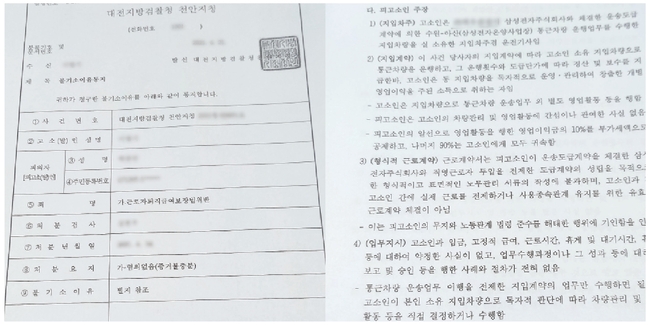 대전지방검찰청 천안지청
(전화번호
수 신
발 신 대전지방검찰청
제 목 불기소이유통지
귀하가 청구한 불기소이유를 아래와 같이 통지합니다.
① 사 건 번 호
대전지방검찰청 천안지청
② 고소(발)인 성명
피의자
[피고소(발)인]
③ 성 명
④ 주민등록번호
⑤ 죄 명
가.근로자퇴직급여보장법위반
⑥ 처 분 검 사
⑦ 처 분 년 월 일
⑧ 처 분 요 지
가-혐의없음(증거불충분)
⑨ 불 기 소 이 유
별지 참조
다. 피고소인 주장
1) (지입차주) 고소인은 삼성전자주식회사와 체결한 운송도급
계약에 의한 수원-아산(삼성전자온양사업장) 통근차량 운행업무를 수행한
지입차량을 실 소유한 지입차주겸 운전기사임
2) (지입계약) 이 사건 당사자의 지입계약에 따라 고소인 소유 지입차량으로
통근차량을 운행하고, 그 운행횟수와 도급단가에 따라 정산 및 보수를 지
급한바, 고소인은 동 지입차량을 독자적으로 운영·관리하여 창출한 개별
영업이익을 주된 소득으로 취하는 자임
- 고소인은 지입차량으로 통근차량 운송업무 외 별도 영업활동 등을 행함
- 피고소인은 고소인의 차량관리 및 영업활동에 간섭이나 관여한 사실 없음
- 피고소인의 알선으로 영업활동을 행한 영업이익금의 10%를 부가세액으로
공제하고, 나머지 90%는 고소인에게 모두 귀속함
3) (형식적 근로계약) 근로계약서는 피고소인이 운송도급계약을 체결한 삼성
전자주식회사와 위명근로자 투입을 전제한 도급계약의 성립을 목적으
한 형식적이고 표면적인 노무관리 서류의 작성에 불과하며, 고소인과
고소인 간에 실제 근로를 전제하거나 사용종속관계 유지를 위한 유효
근로계약 체결이 아님
- 이는 피고소인의 무지와 노동관계 법령 준수를 해태한 행위에 기인함을 인
4) (업무지시) 고소인과 임금, 고정적 급여, 근로시간, 휴게 및 대기시간,
등에 대하여 약정한 사실이 없고, 업무수행과정이나 그 성과 등에 대
보고 및 승인 등을 행한 사례와 절차가 전혀 없음
- 통근차량 운송업무 이행을 전제한 지입계약의 업무만 수행하면 될
고소인이 본인 소유 지입차량으로 독자적 판단에 따라 차량관리 및
활동 등을 직접 결정하거나 수행함